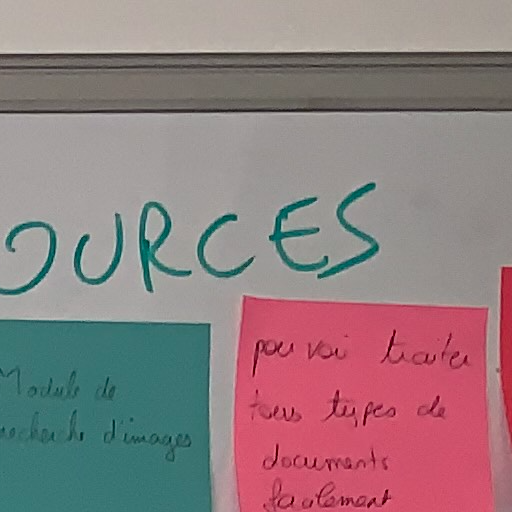 OURCES
Module de
recherche d'images
pouvoir traiter
tous types de
documents
facilement